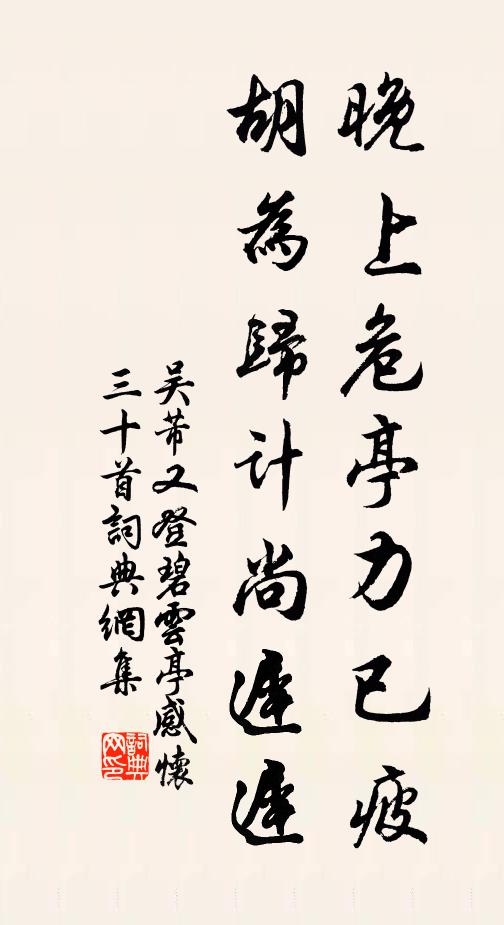 晚上危亭力已疲
胡為歸計尚遲遲
吴芾又登碧雲亭感懷
三十首詞典網集
詞典
网印